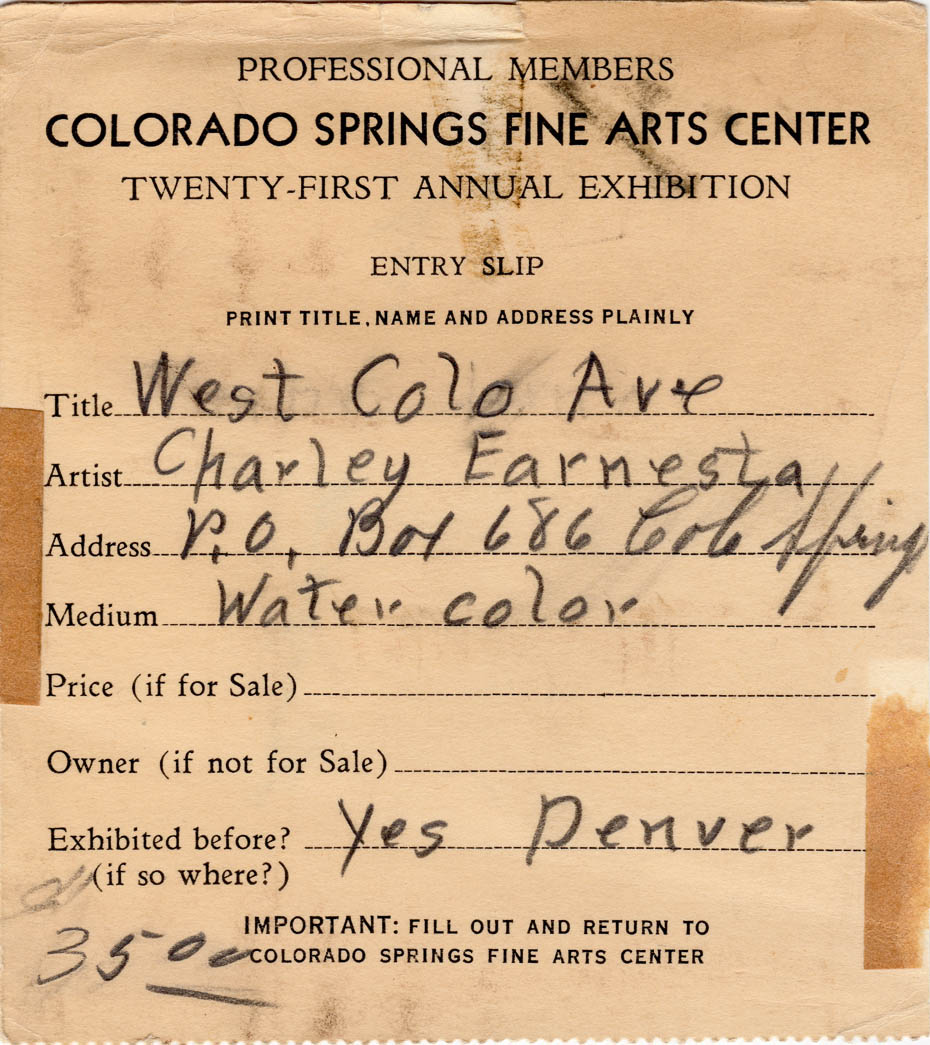 PROFESSIONAL MEMBERS
COLORADO SPRINGS FINE ARTS CENTER
TWENTY-FIRST ANNUAL EXHIBITION
ENTRY SLIP
PRINT TITLE, NAME AND ADDRESS PLAINLY
Title West Colo Ave
Artist Charley Earnesta
Address P.O. Box 686 Colo Spring
Medium Water color
Price (if for Sale)
Owner (if not for Sale)
Exhibited before? Yes Denver
(if so where?)
IMPORTANT: FILL OUT AND RETURN TO
35 00 COLORADO SPRINGS FINE ARTS CENTER